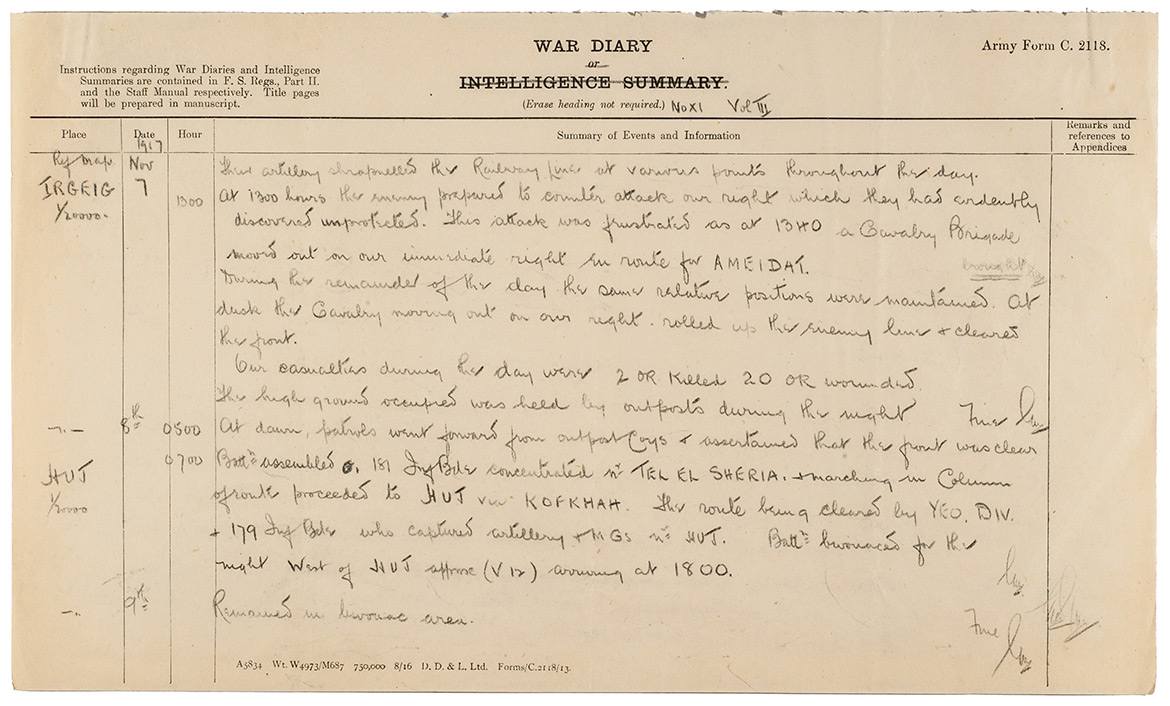 WAR DIARY
or
INTELLIGENCE SUMMARY.
(Erase heading not required.) No XI Vol III
Army Form C. 2118.
Instructions regarding War Diaries and Intelligence
Summaries are contained in F. S. Regs., Part II.
and the Staff Manual respectively. Title pages
will be prepared in manuscript.
Place Date Hour Summary of Events and Information Remarks and references to Appendices
1917
Ref Map Nov Their artillery shrapnelled the Railway line at various points throughout the day.
IRGEIG 7 1300 At 1300 hours the enemy prepared to counter attack our right which they had evidently
1/20000. discovered unprotected. This attack was frustrated as at 1340 a Cavalry Brigade
moved out on our immediate right en route for AMEIDAT. brought
During the remainder of the day the same relative positions were maintained. At
dusk the Cavalry moving out on our right rolled up the enemy line & cleared
the front.
Our casualties during the day were 2 OR Killed 20 OR wounded.
The high ground occupied was held by outposts during the night Fine
-"- 8th 0500 At dawn, patrols went forward from outpost Coys & assertained that the front was clear
HUJ 0700 Battn assembled 181 Inf Bde concentrated nr TEL EL SHERIA. & marching in Column
1/20000 of route proceeded to HUJ via KOFKHAH. The route being cleared by YEO. DIV.
+ 179 Inf Bde who captured artillery & MGs nr HUJ. Battn bivouaced for the
night West of HUJ approx (V12) arriving at 1800.
-"- 9th Remained in bivouac area. Fine
A5834 Wt. W4973/M687 750,000 8/16 D. D. & L. Ltd. Forms/C.2118/13.